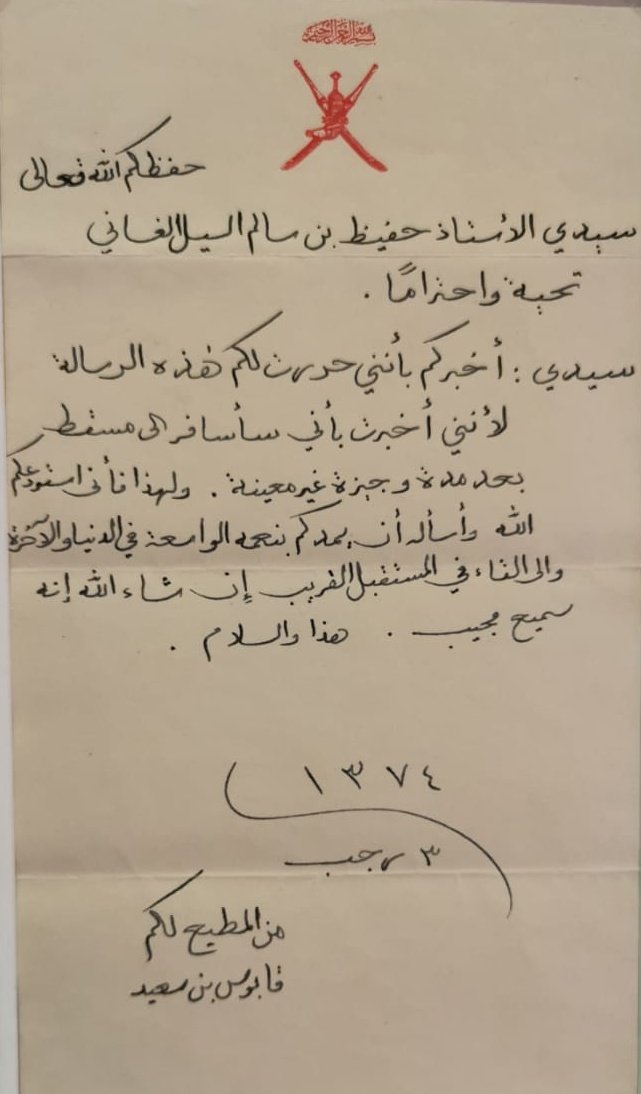 بسم الله الرحمن الرحيم
حفظكم الله تعالى
سيدي الأستاذ حفيظ بن سالم السيل الغساني
تحية واحترامًا .
سيدي : أخبركم بأنني حررت لكم هذه الرسالة
لأنني أخبرت بأني سأسافر الى مسقط
بعد مدة وجيزة غير معينة . ولهذا فأنى استودعكم
الله وأسأله أن يمدكم بنعمه الواسعة في الدنيا والآخرة
والى القاء في المستقبل القريب إن شاء الله إنه
سميع مجيب . هذا والسلام .
١٣٧٤
٣ رجب
من المطيع لكم
قابوس بن سعيد